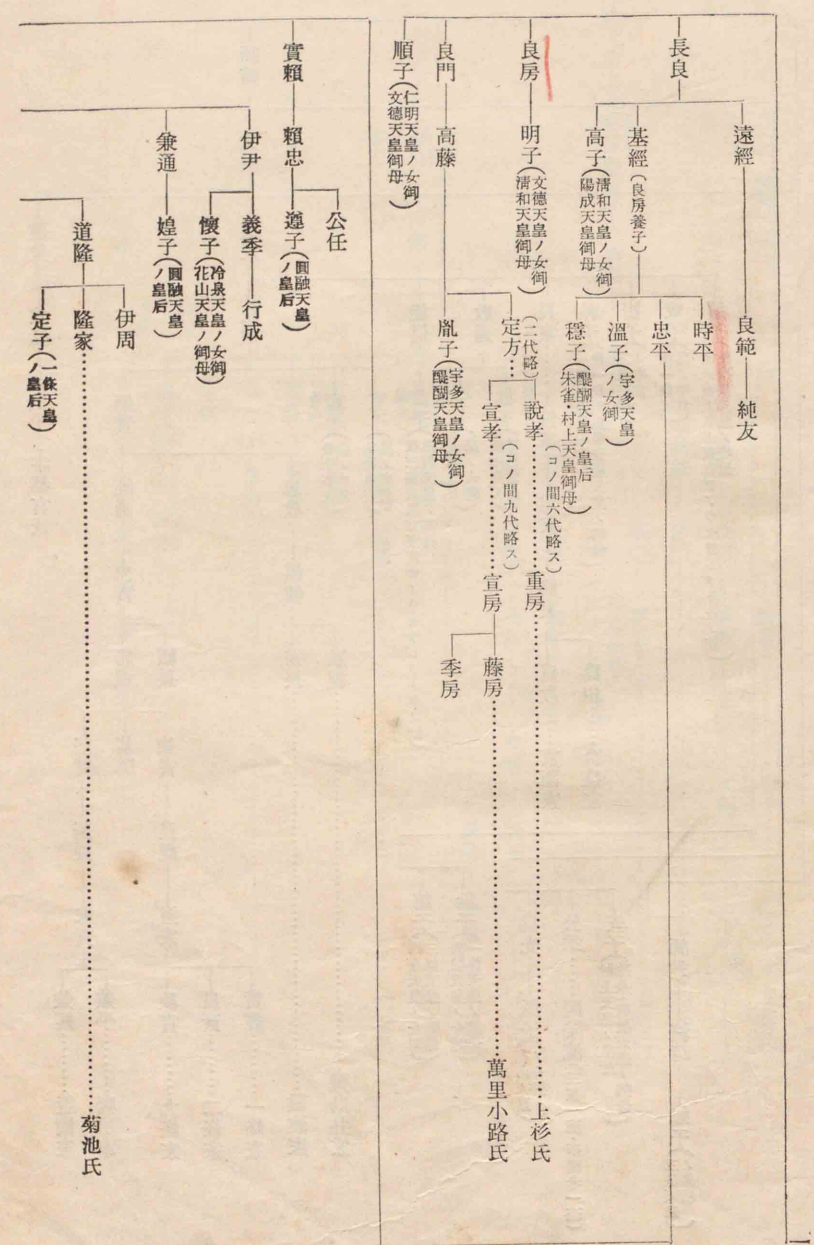 長良
遠經
良範
純友
基經(良房養子)
時平
忠平
溫子(宇多天皇
ノ女御)
穩子(醍醐天皇ノ皇后
朱雀・村上天皇御母)
高子(淸和天皇ノ女御
陽成天皇御母)
良房
明子(文德天皇ノ女御
淸和天皇御母)
良門
高藤
定方
(二代略)
說孝
(コノ間六代略ス)
重房
上杉氏
宣孝
(コノ間九代略ス)
宣房
藤房
萬里小路氏
季房
胤子(宇多天皇ノ女御
醍醐天皇御母)
順子(仁明天皇ノ女御
文德天皇御母)
實賴
賴忠
公任
遵子(圓融天皇
ノ皇后)
伊尹
義季
行成
懷子(冷泉天皇ノ女御
花山天皇ノ御母)
兼通
媓子(圓融天皇
ノ皇后)
道隆
伊周
隆家
菊池氏
定子(一條天皇
ノ皇后)